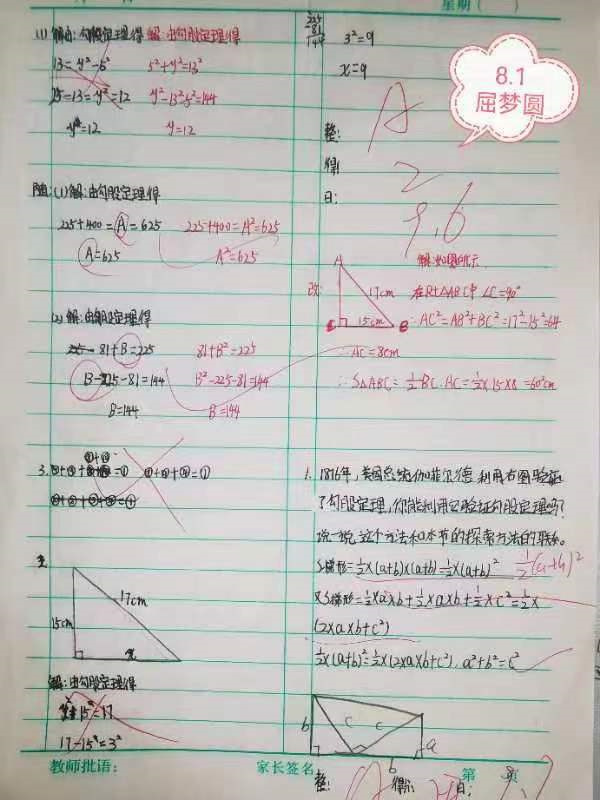 星期（ ）
8.1
屈梦圆
(1) 解: 由勾股定理得 解: 由勾股定理得
13=y²-5² 5²+y²=13²
25=13=y²=12 y²-13²5²=144
y=12 y=12
(1) 解: 由勾股定理得
225+400=A=625 225+400=A²=625
A=625 A²=625
(2) 解: 由勾股定理得
81+B=225 81+B²=225
B=225-81=144 B²-225-81=144
B=144 B=144
3. ①+②+③=①
17cm
15cm
x
解: 由勾股定理得
15²=17
17-15²=3²
225
-81
144
3²=9
x=9
整:
得:
日:
A
2
9,6
改:
A
17cm
15cm
B
解: 如图所示
在Rt△ABC中 ∠C=90°
∴AC²=AB²+BC²=17²-15²=64
∴AC=8cm
∴S△ABC=½BC·AC=½×15×8=60cm
1. 1876年, 美国总统伽菲尔德利用右图验证
了勾股定理, 你能利用它验证勾股定理吗?
说一说, 这个方法和本节的探索方法的联系。
S梯形=½×(a+b)×(a+b)=½×(a+b)² ½(a+b)²
又S梯形=½×a×b+½×a×b+½×c²=½×
(2×a×b+c²)
½×(a+b)²=½×(2×a×b+c²). a²+b²=c²
b
c
c
a
b
整:
得:
日:
教师批语: 家长签名 第 页